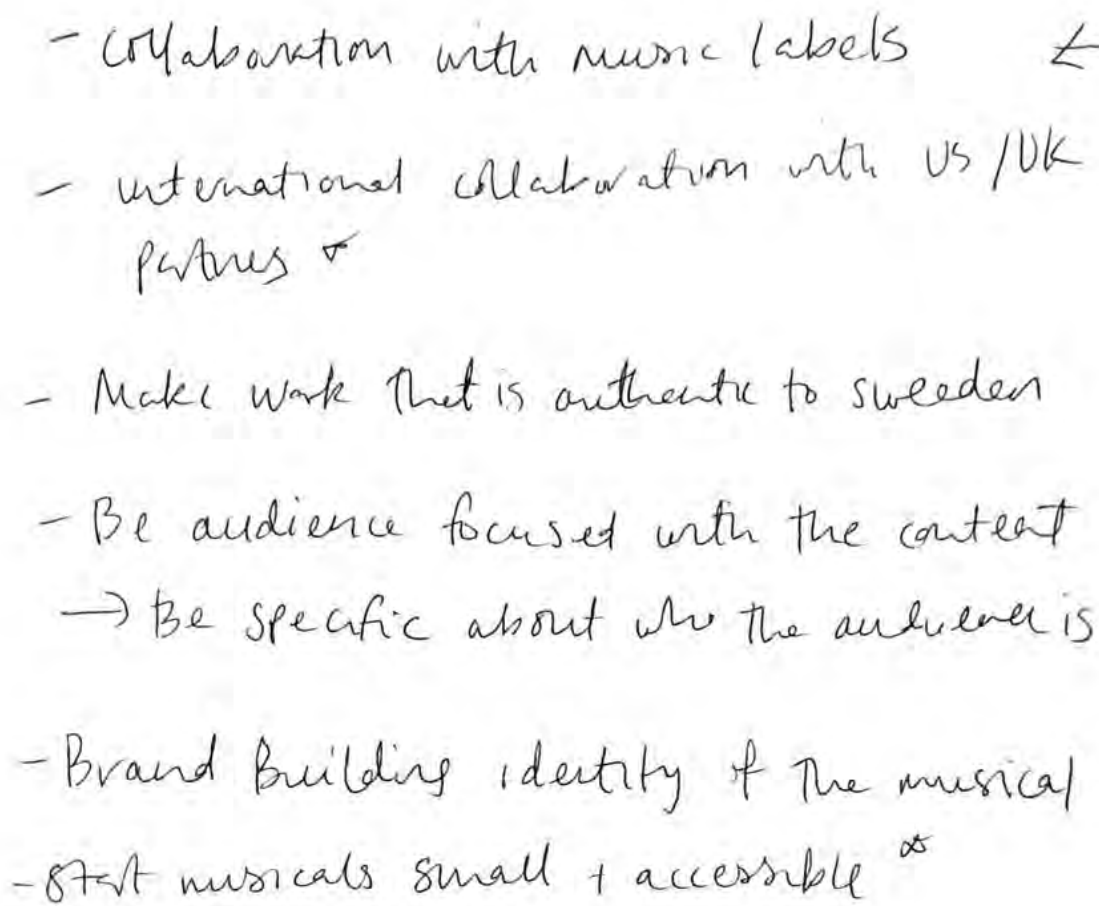 - Collaboration with music labels ←
- international collaboration with US/UK
partners *
- Make work that is authentic to sweeden
- Be audience focused with the content
→ Be specific about who the audience is
- Brand Building identity of the musical
- start musicals small + accessible *